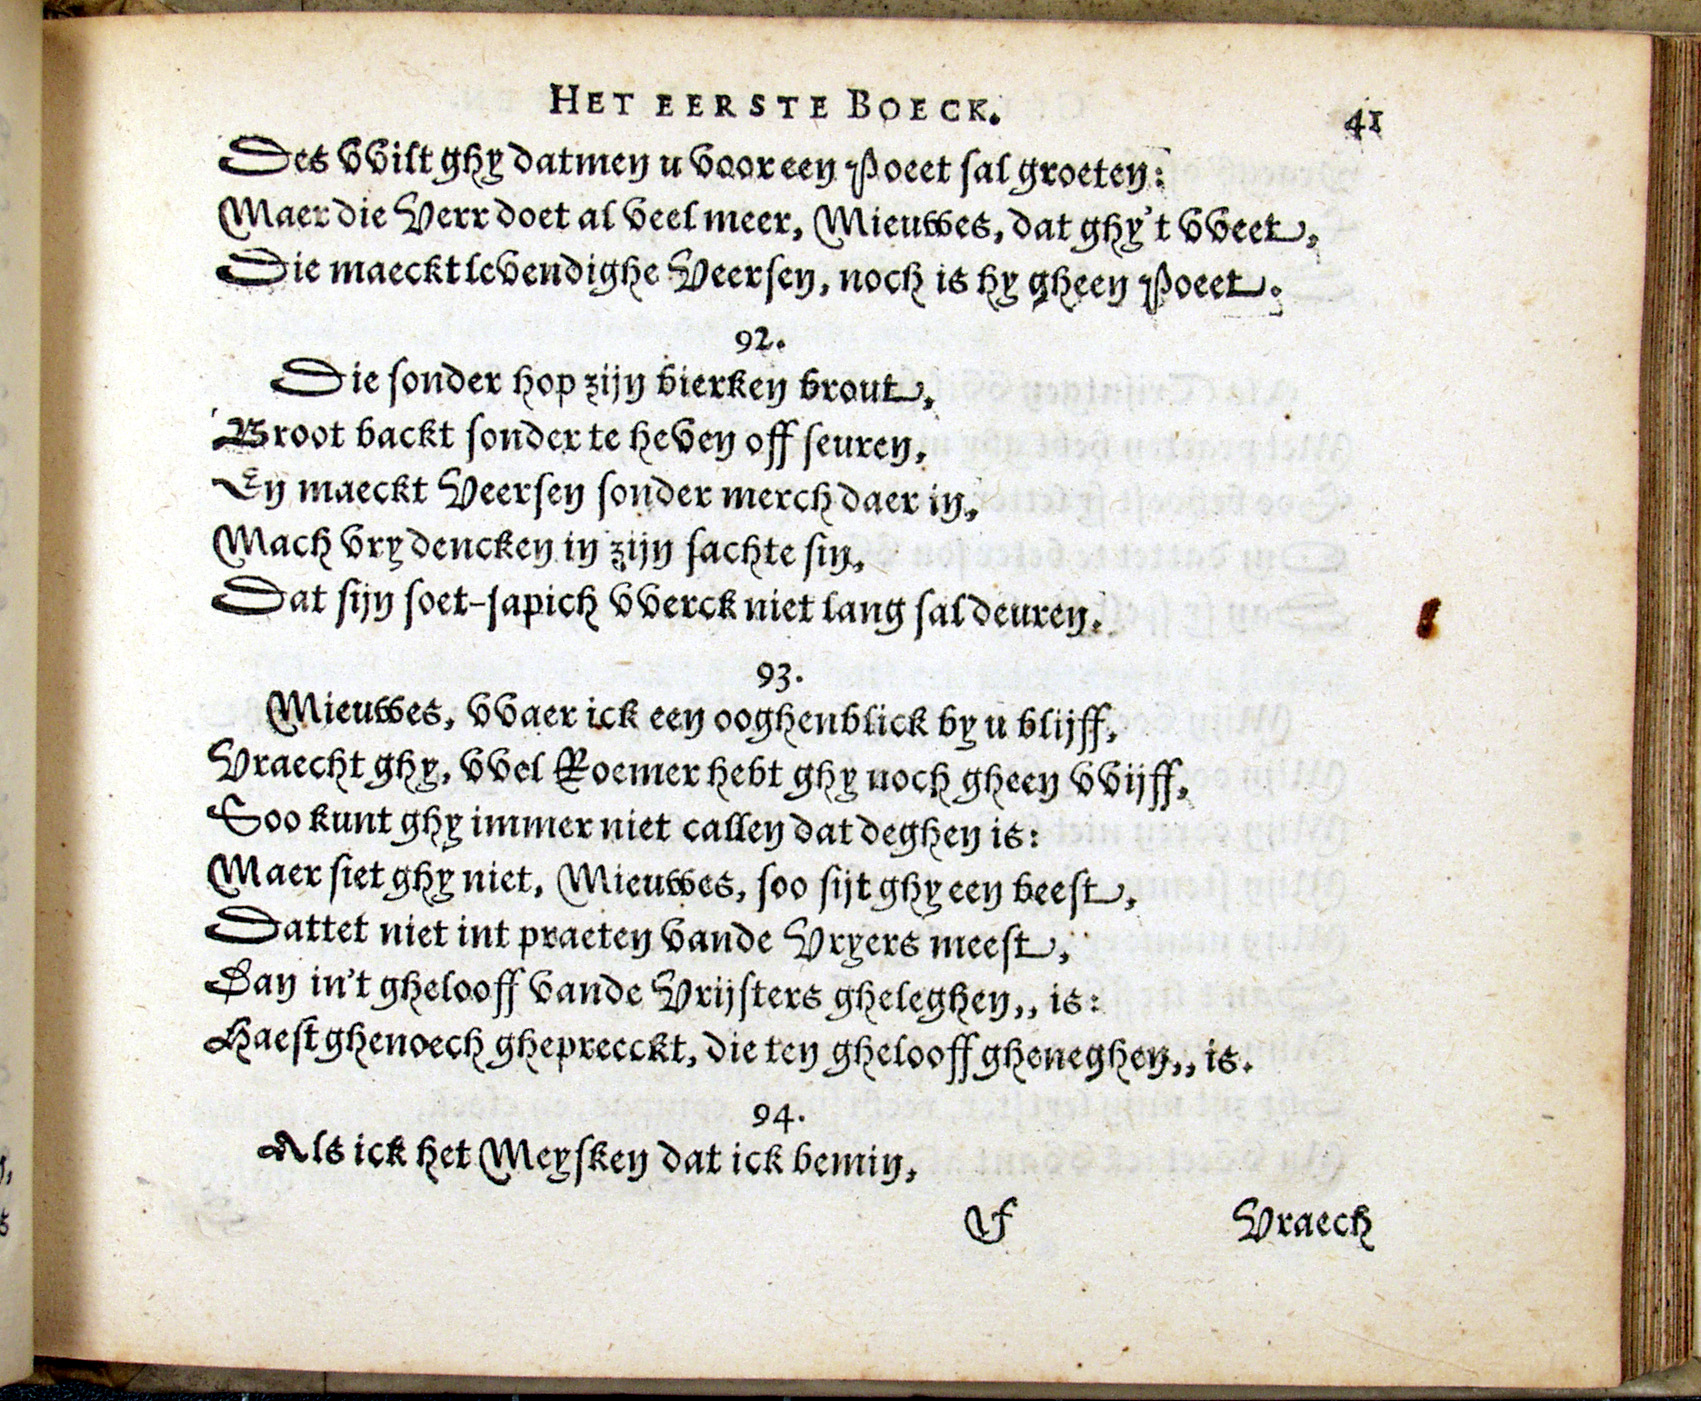 HET EERSTE BOECK. 41
Des vvilt ghy datmen u voor een Poeet sal groeten:
Maer die Verr doet al veel meer, Mieuwes, dat ghy't vveet,
Die maeckt levendighe Veersen, noch is hy gheen Poeet.
92.
Die sonder hop zijn bierken brout,
Broot backt sonder te heven off seuren,
En maeckt Veersen sonder merch daer in,
Mach vry dencken in zijn sachte sin,
Dat sijn soet-sapich vverck niet lang sal deuren.
93.
Mieuwes, vvaer ick een ooghenblick by u blijff,
Vraecht ghy, vvel Roemer hebt ghy noch gheen vvijff,
Soo kunt ghy immer niet callen dat deghen is:
Maer siet ghy niet, Mieuwes, soo sijt ghy een beest,
Dattet niet int praeten vande Vryers meest,
Dan in't ghelooff vande Vrijsters gheleghen,, is:
Haest ghenoech ghepreeckt, die ten ghelooff gheneghen,, is.
94.
Als ick het Meysken dat ick bemin,
F Vraech